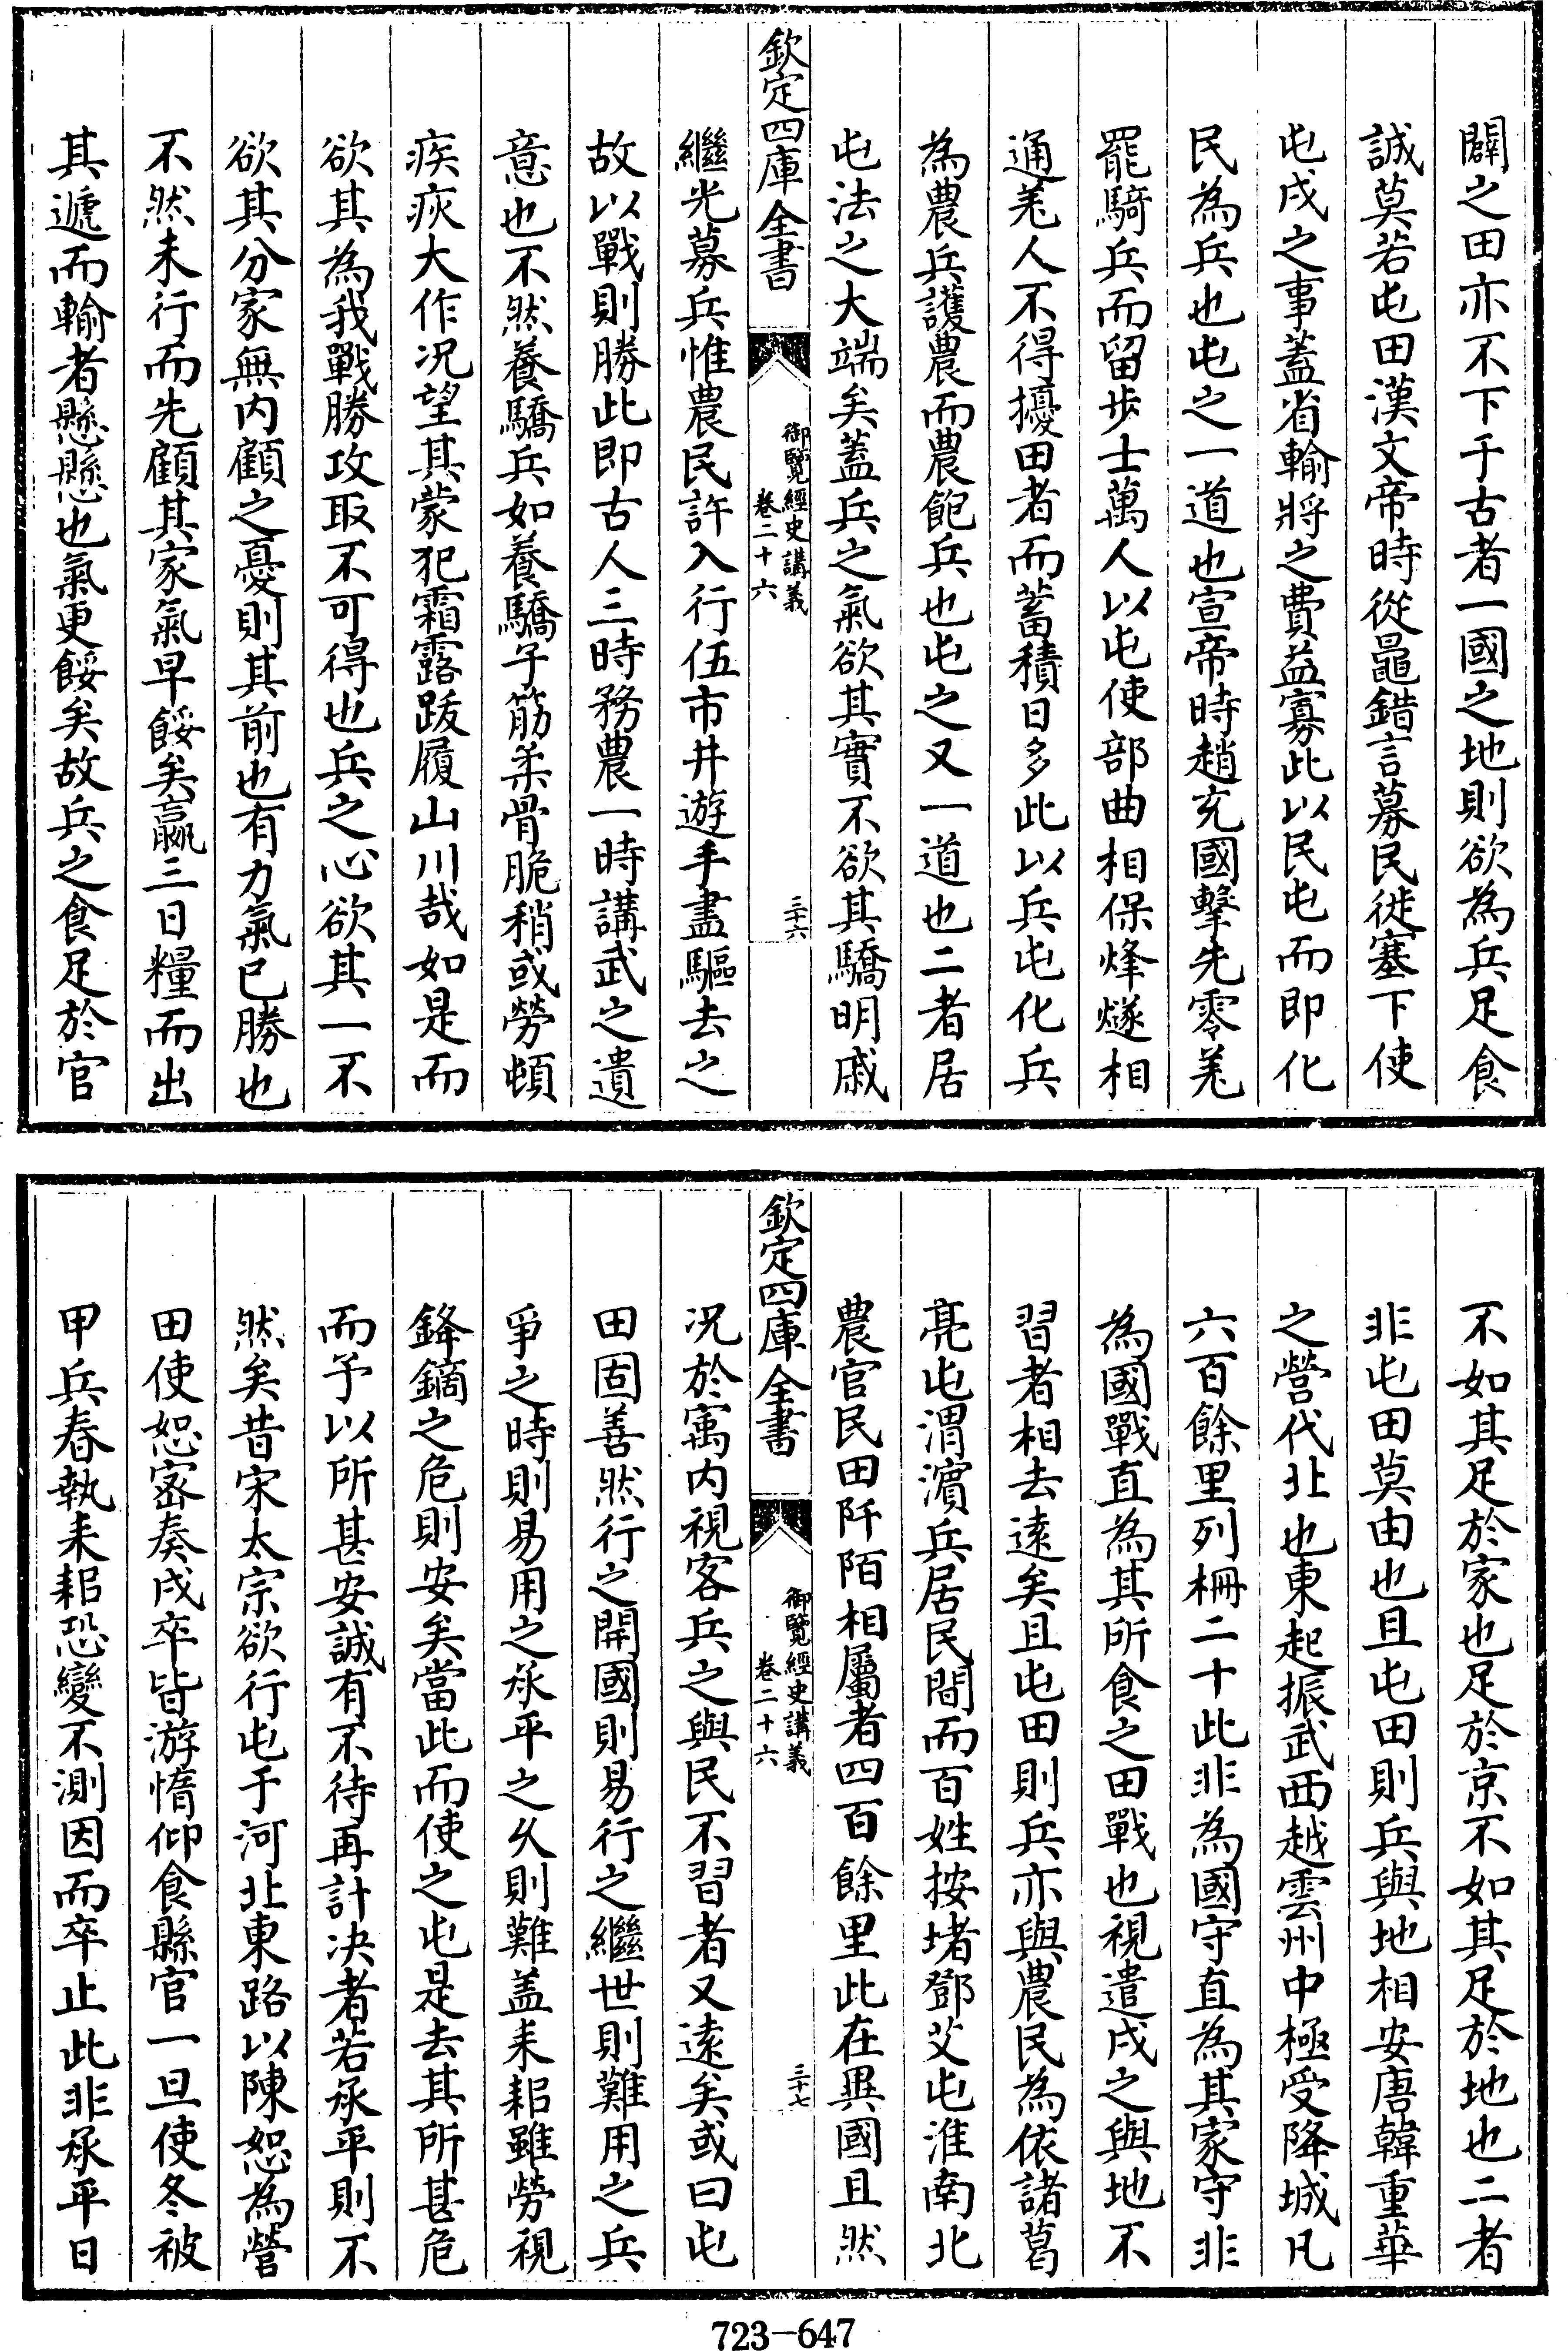 闢之田亦不下于古者一國之地則欲為兵足食
誠莫若屯田漢文帝時從鼂錯言募民徙塞下使
屯戍之事蓋省輸將之費益寡此以民屯而即化
民為兵也屯之一道也宣帝時趙充國擊先零羌
罷騎兵而留步士萬人以屯使部曲相保烽燧相
通羌人不得擾田者而蓄積日多此以兵屯化兵
為農兵護農而農飽兵也屯之又一道也二者居
屯法之大端矣蓋兵之氣欲其實不欲其驕明戚
欽定四庫全書
御覽經史講義
卷二十六
三十六
繼光募兵惟農民許入行伍市井遊手盡驅去之
故以戰則勝此即古人三時務農一時講武之遺
意也不然養驕兵如養驕子筋柔骨脆稍或勞頓
疾疢大作况望其蒙犯霜露跋履山川哉如是而
欲其為我戰勝攻取不可得也兵之心欲其一不
欲其分家無内顧之憂則其前也有力氣已勝也
不然未行而先顧其家氣早餒矣羸三日糧而出
其遞而輸者懸懸也氣更餒矣故兵之食足於官
不如其足於家也足於京不如其足於地也二者
非屯田莫由也且屯田則兵與地相安唐韓重華
之營代北也東起振武西越雲州中極受降城凡
六百餘里列柵二十此非為國守直為其家守非
為國戰直為其所食之田戰也視遣戍之與地不
習者相去遠矣且屯田則兵亦與農民為依諸葛
亮屯渭濵兵居民間而百姓按堵鄧艾屯淮南北
農官民田阡陌相屬者四百餘里此在異國且然
欽定四庫全書
御覽經史講義
卷二十六
三十七
况於寓内視客兵之與民不習者又遠矣或曰屯
田固善然行之開國則易行之繼世則難用之兵
爭之時則易用之承平之久則難盖耒耜雖勞視
鋒鏑之危則安矣當此而使之屯是去其所甚危
而予以所甚安誠有不待再計决者若承平則不
然矣昔宋太宗欲行屯于河北東路以陳恕為營
田使恕密奏戍卒皆游惰仰食縣官一旦使冬被
甲兵春執耒耜恐變不測因而卒止此非承平日
723-647